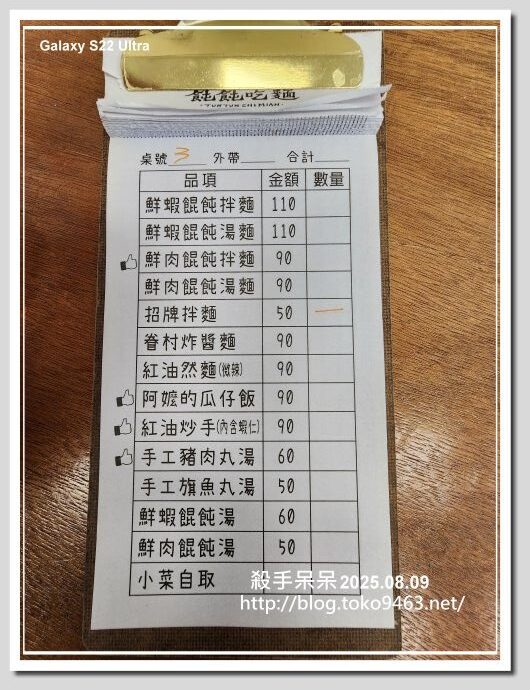 Galaxy S22 Ultra
飩飩吃麵
TUN TUN CHI MIAN
桌號 3 外帶 合計
品項 金額 數量
鮮蝦餛飩拌麵 110
鮮蝦餛飩湯麵 110
鮮肉餛飩拌麵 90
鮮肉餛飩湯麵 90
招牌拌麵 50 一
眷村炸醬麵 90
紅油然麵(微辣) 90
阿嬤的瓜仔飯 90
紅油炒手(內含蝦仁) 90
手工豬肉丸湯 60
手工旗魚丸湯 50
鮮蝦餛飩湯 60
鮮肉餛飩湯 50
小菜自取
殺手呆呆 2025.08.09
http://blog.toko9463.net/